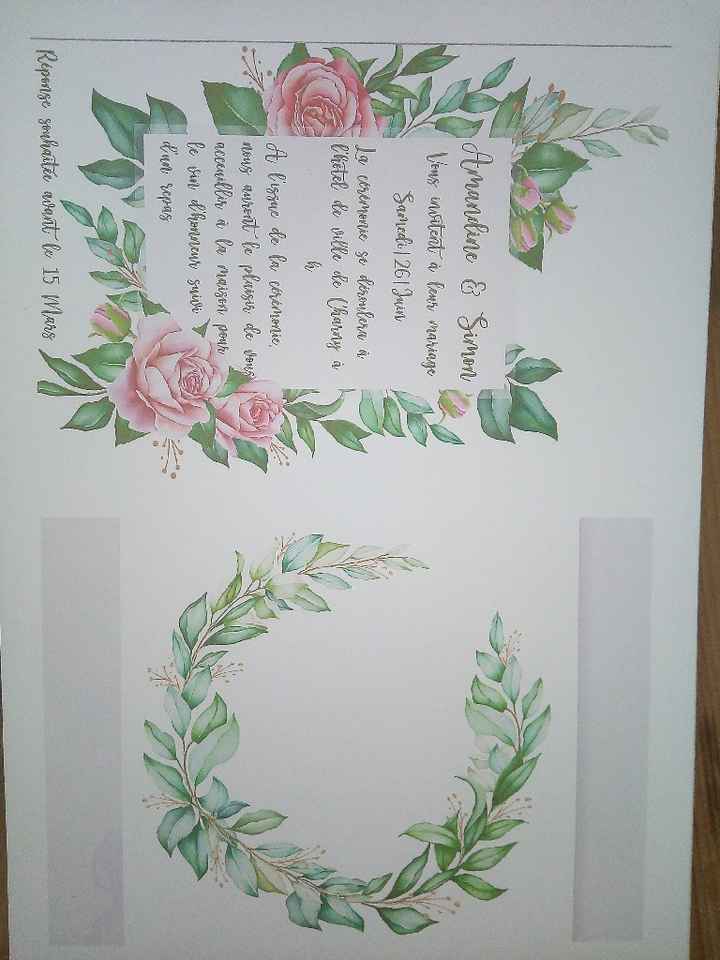 Amandine & Simon
Vous invitent à leur mariage
Samedi | 26 | Juin
La cérémonie se déroulera à
l'hôtel de ville de Charny à
h
A l'issue de la cérémonie,
nous auront le plaisir de vous
accueillir à la maison pour
le vin d'honneur suivi
d'un repas
Réponse souhaitée avant le 15 Mars